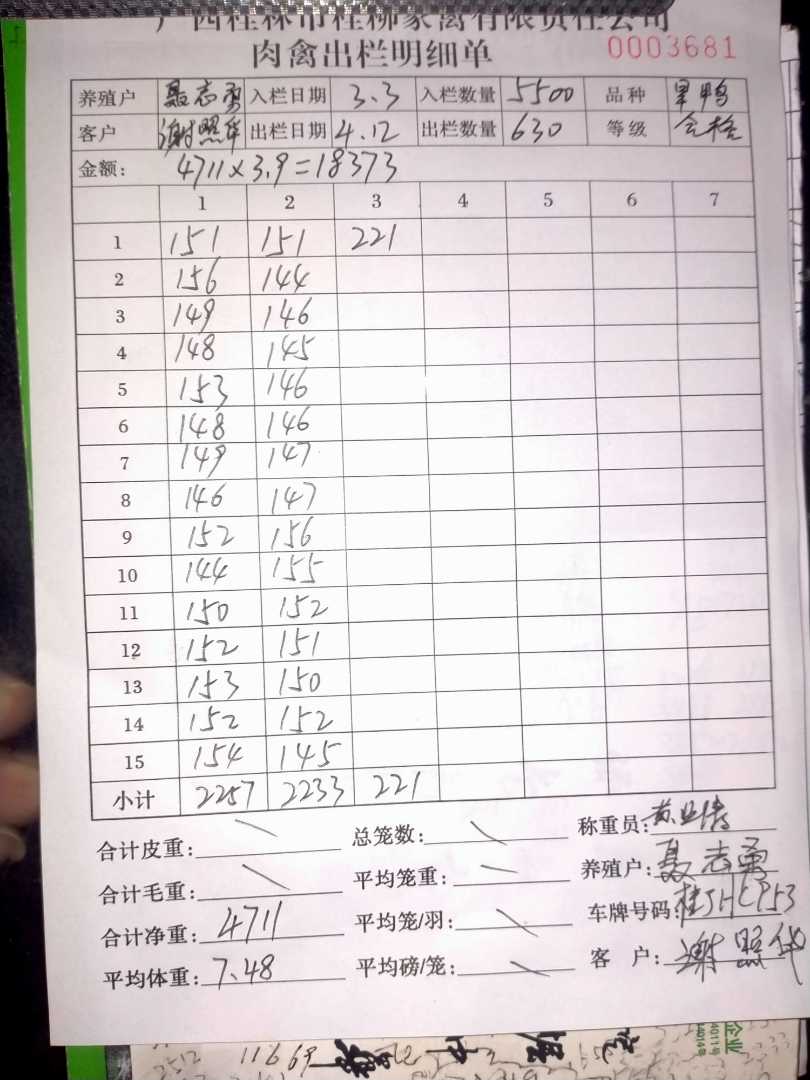 广西桂林市桂柳家禽有限责任公司
肉禽出栏明细单 0003681
养殖户 聂志勇 入栏日期 3.3 入栏数量 5500 品种 旱鸭
客户 谢照华 出栏日期 4.12 出栏数量 630 等级 合格
金额: 4711×3.9=18373
1 2 3 4 5 6 7
1 151 151 221
2 156 144
3 149 146
4 148 145
5 153 146
6 148 146
7 149 147
8 146 147
9 152 156
10 144 155
11 150 152
12 152 151
13 153 150
14 152 152
15 154 145
小计 2257 2233 221
合计皮重: 总笼数: 称重员:
合计毛重: 平均笼重: 养殖户: 聂志勇
合计净重: 4711 平均笼/羽: 车牌号码:
平均体重: 7.48 平均磅/笼: 客 户: 谢照华
企业
2512 11669